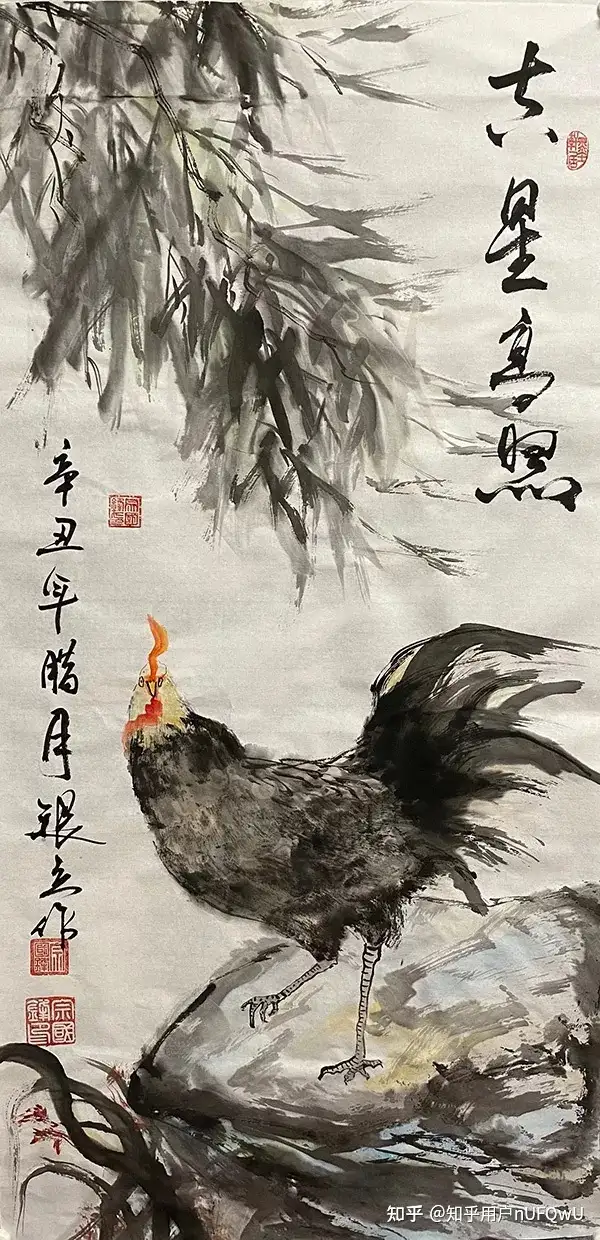 吉星高照
辛丑年腊月银立作
知乎 @知乎用户nUFQwU